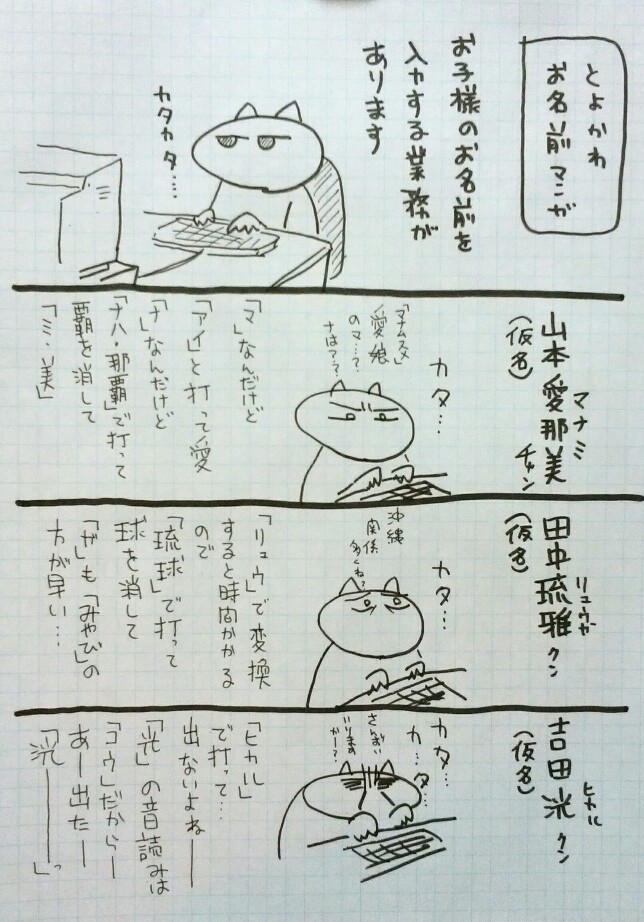 とよかわ
お名前マンガ
お子様のお名前を
入力する業務が
あります
カタカタ…
山本愛那美チャン
マナミ
(仮名)
カタ…
「マナムスメ」
愛娘
のマ…?
ナは??
「マ」なんだけど
「アイ」と打って愛
「ナ」なんだけど
「ナハ・那覇」で打って
覇を消して
「ミ・美」
田中琉雅クン
リュウガ
(仮名)
カタ…
沖縄
関係
多くね?
「リュウ」で変換
すると時間かかる
ので
「琉球」で打って
球を消して
「ガ」も「みやび」の
方が早い…
吉田洸クン
ヒカル
(仮名)
カタ…
カ…タ…
さんずい
いります
かー?
「ヒカル」
で打って…
出ないよねー
「光」の音読みは
「コウ」だからー
あー出たー
「洸ーーー」っ